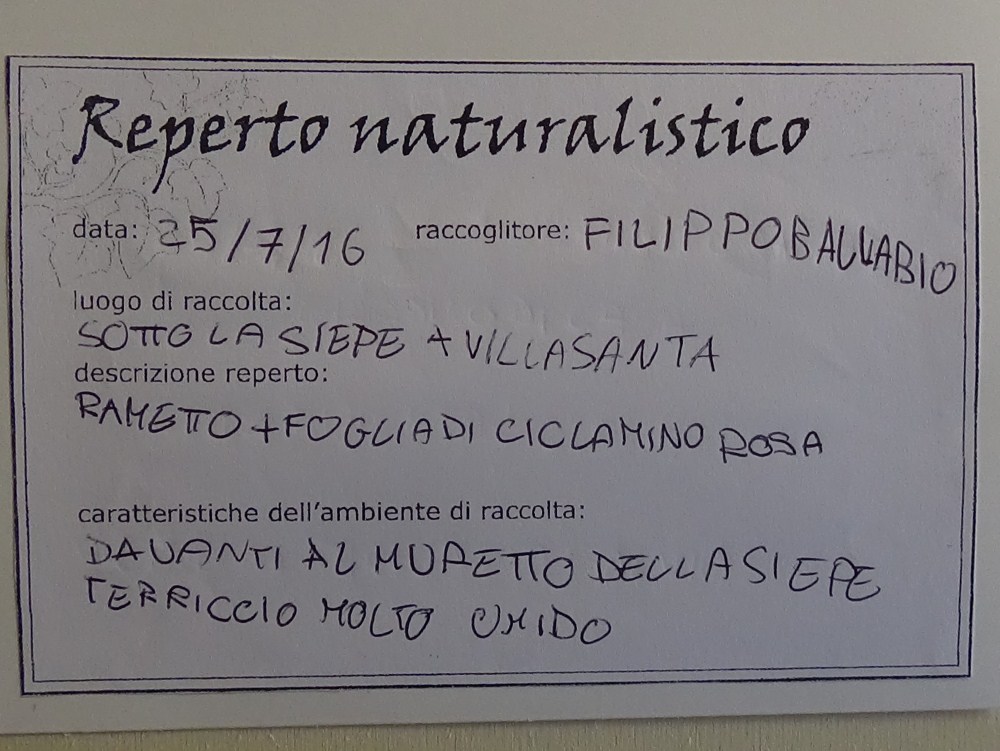 Reperto naturalistico
data: 25/7/16 raccoglitore: FILIPPO BALLABIO
luogo di raccolta:
SOTTO LA SIEPE A VILLASANTA
descrizione reperto:
RAMETTO + FOGLIA DI CICLAMINO ROSA
caratteristiche dell'ambiente di raccolta:
DAVANTI AL MURETTO DELLA SIEPE
TERRICCIO MOLTO UMIDO